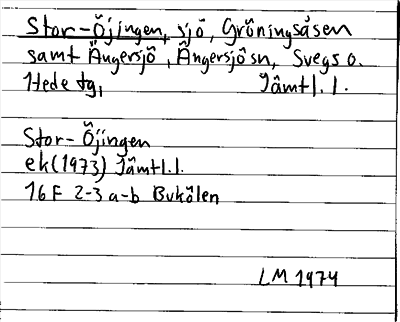 Stor-Öjingen, sjö, Gröningsåsen
samt Ängersjö, Ängersjö sn, Svegs o.
Hede tg, Jämtl. l.
Stor-Öjingen
ek (1973) Jämtl. l.
16F 2-3 a-b BuköLen
LM 1974